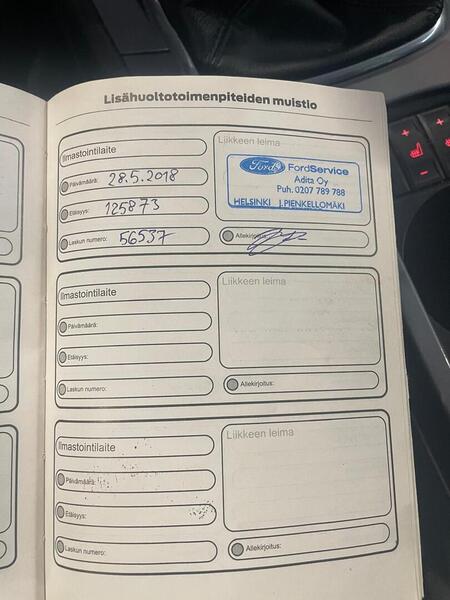 Lisähuoltotoimenpiteiden muistio
Ilmastointilaite
Päivämäärä: 28.5.2018
Etäisyys: 125873
Laskun numero: 56537
Liikkeen leima
Ford FordService
Adita Oy
Puh. 0207 789 788
HELSINKI J.PIENKELLOMÄKI
Allekirjoitus:
Ilmastointilaite
Päivämäärä:
Etäisyys:
Laskun numero:
Liikkeen leima
Allekirjoitus:
Ilmastointilaite
Päivämäärä:
Etäisyys:
Laskun numero:
Liikkeen leima
Allekirjoitus: